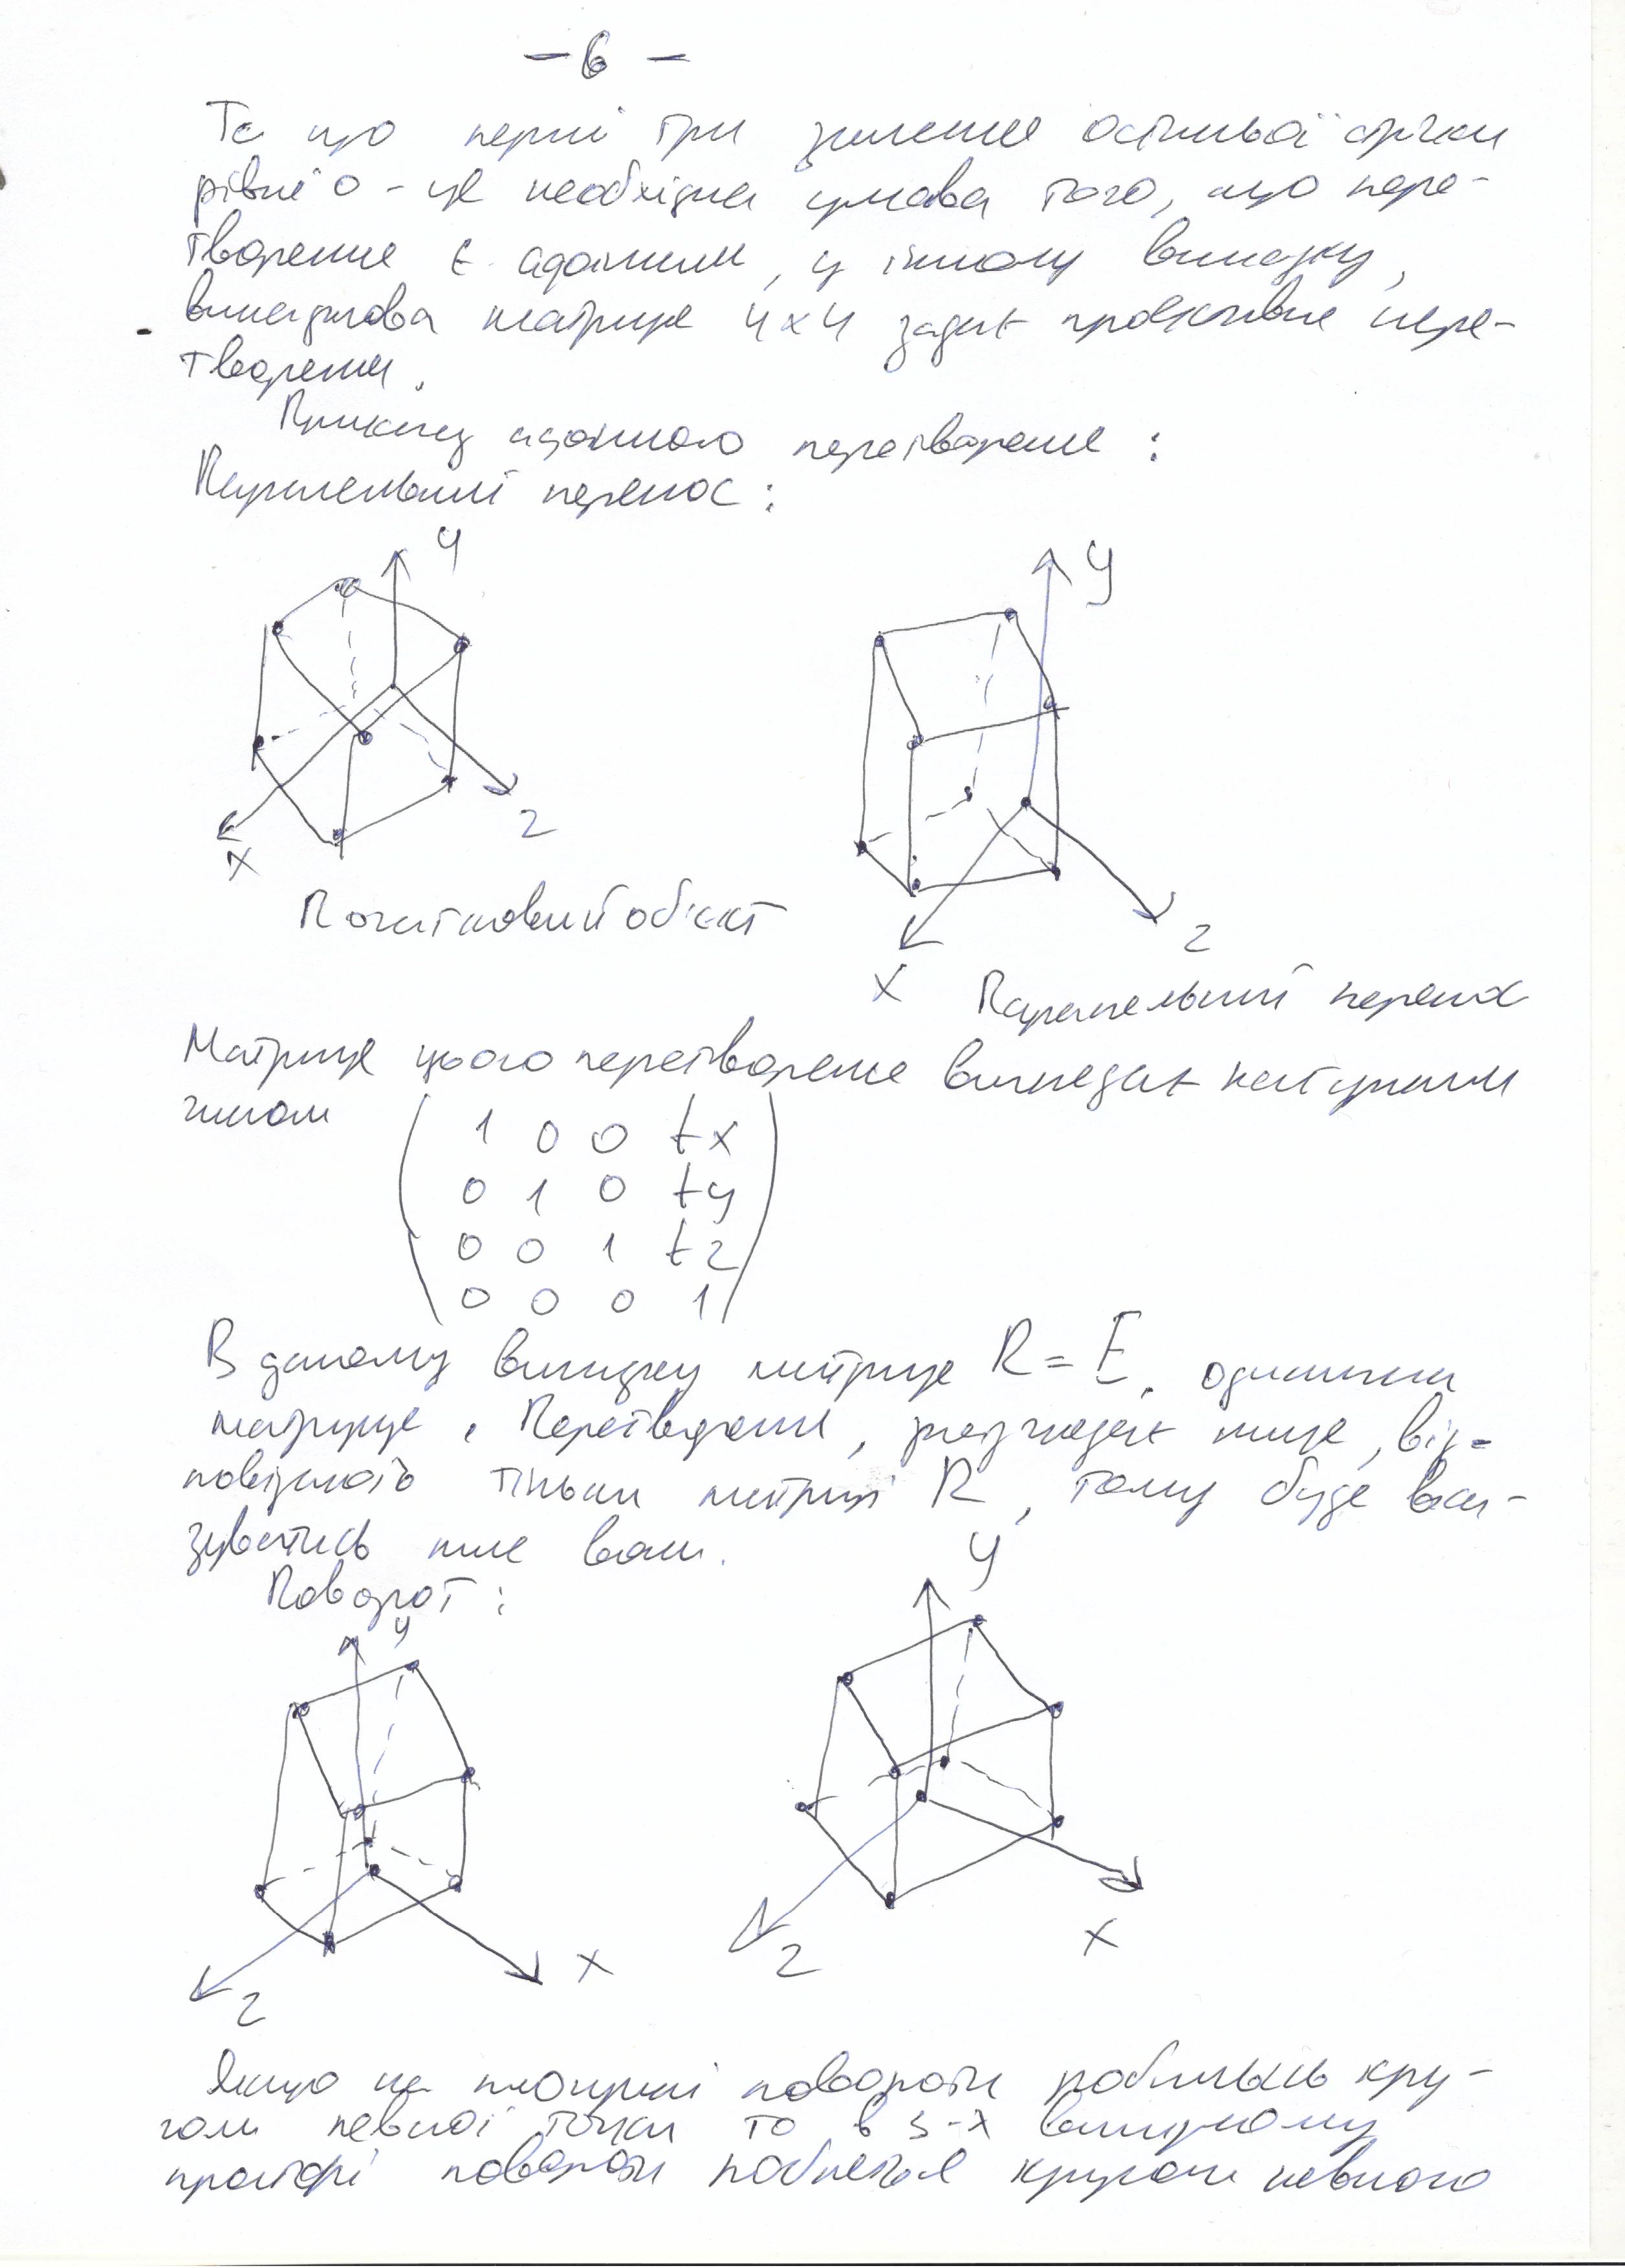 - 6 -
Те що перші три значення останньої стрічки
рівні 0 - це необхідна умова того, що пере-
творення є афінним, у іншому випадку,
випадкова матриця 4x4 задає проективне пере-
творення.
Приклад афінного перетворення :
Паралельний перенос :
y
y
z
x
Початковий об'єкт
z
x
Паралельний перенос
Матриця цього перетворення виглядає наступним
чином
1 0 0 tx
0 1 0 ty
0 0 1 tz
0 0 0 1
В даному випадку матриця R = E, одинична
матриця. Перетворення, нижче, від-
повідають тільки матриці R, тому буде вка-
зуватись лише вона.
Поворот :
y
y
x
z
x
z
Якщо на площині повороти робились кру-
гом певної точки то в 3-х вимірному
просторі повороти робляться кругом певного